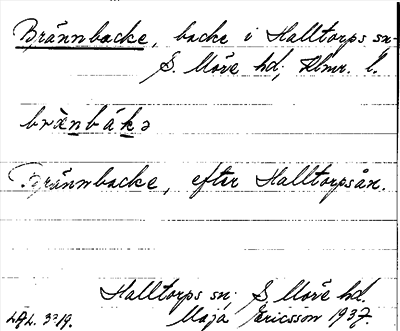 Brännbacke, backe i Halltorps sn
S. Möre hd, Klmr. l.
brä̀nbákə
Brännbacke, efter Halltorpsån.
Halltorps sn, S. Möre hd.
LAL. 3219. Maja Ericsson 1937.